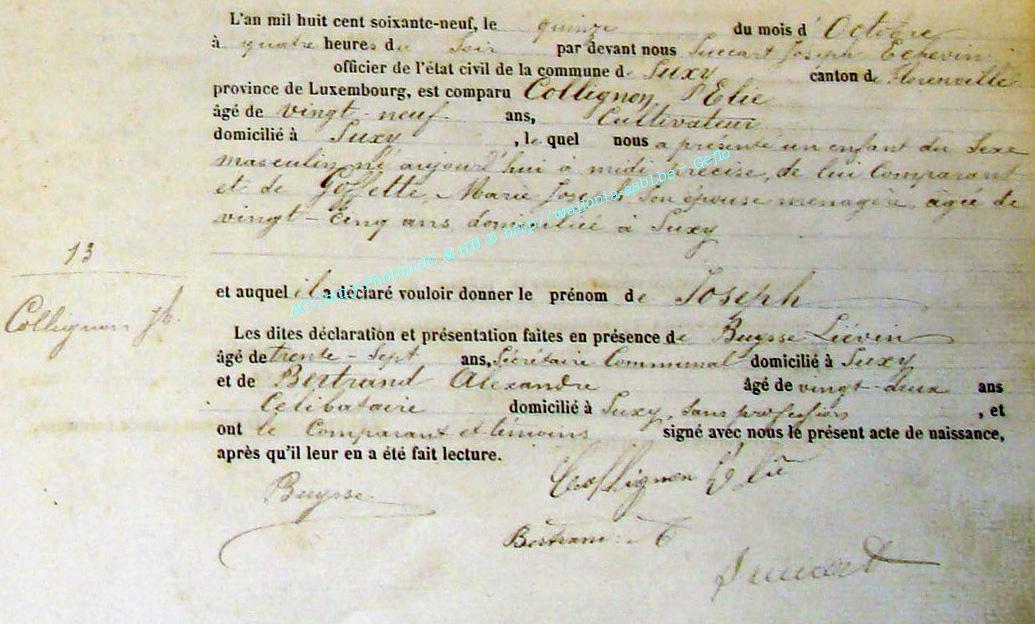 L'an mil huit cent soixante-neuf, le quinze du mois d'Octobre
à quatre heures du Soir par devant nous Succart Joseph Echevin
officier de l'état civil de la commune de Suxy canton de Florenville
province de Luxembourg, est comparu Collignon, Elie
âgé de vingt-neuf ans, Cultivateur
domicilié à Suxy, lequel nous a présenté un enfant du Sexe
masculin, né aujourd'hui à midi précise, de lui Comparant
et de Goffette, Marie Joseph son épouse ménagère, âgée de
vingt-cinq ans, domiciliée à Suxy
13
Collignon Jh.
et auquel il a déclaré vouloir donner le prénom de Joseph
Les dites déclaration et présentation faites en présence de Buysse Liévin
âgé de trente-sept ans, Sécrétaire Communal domicilié à Suxy
et de Bertrand Alexandre âgé de vingt-deux ans
Célibataire domicilié à Suxy, sans profession, et
ont le Comparant et témoins signé avec nous le présent acte de naissance,
après qu'il leur en a été fait lecture.
Buysse
Collignon Elie
Bertrand A
Succart
http://wallonia-asbl.be